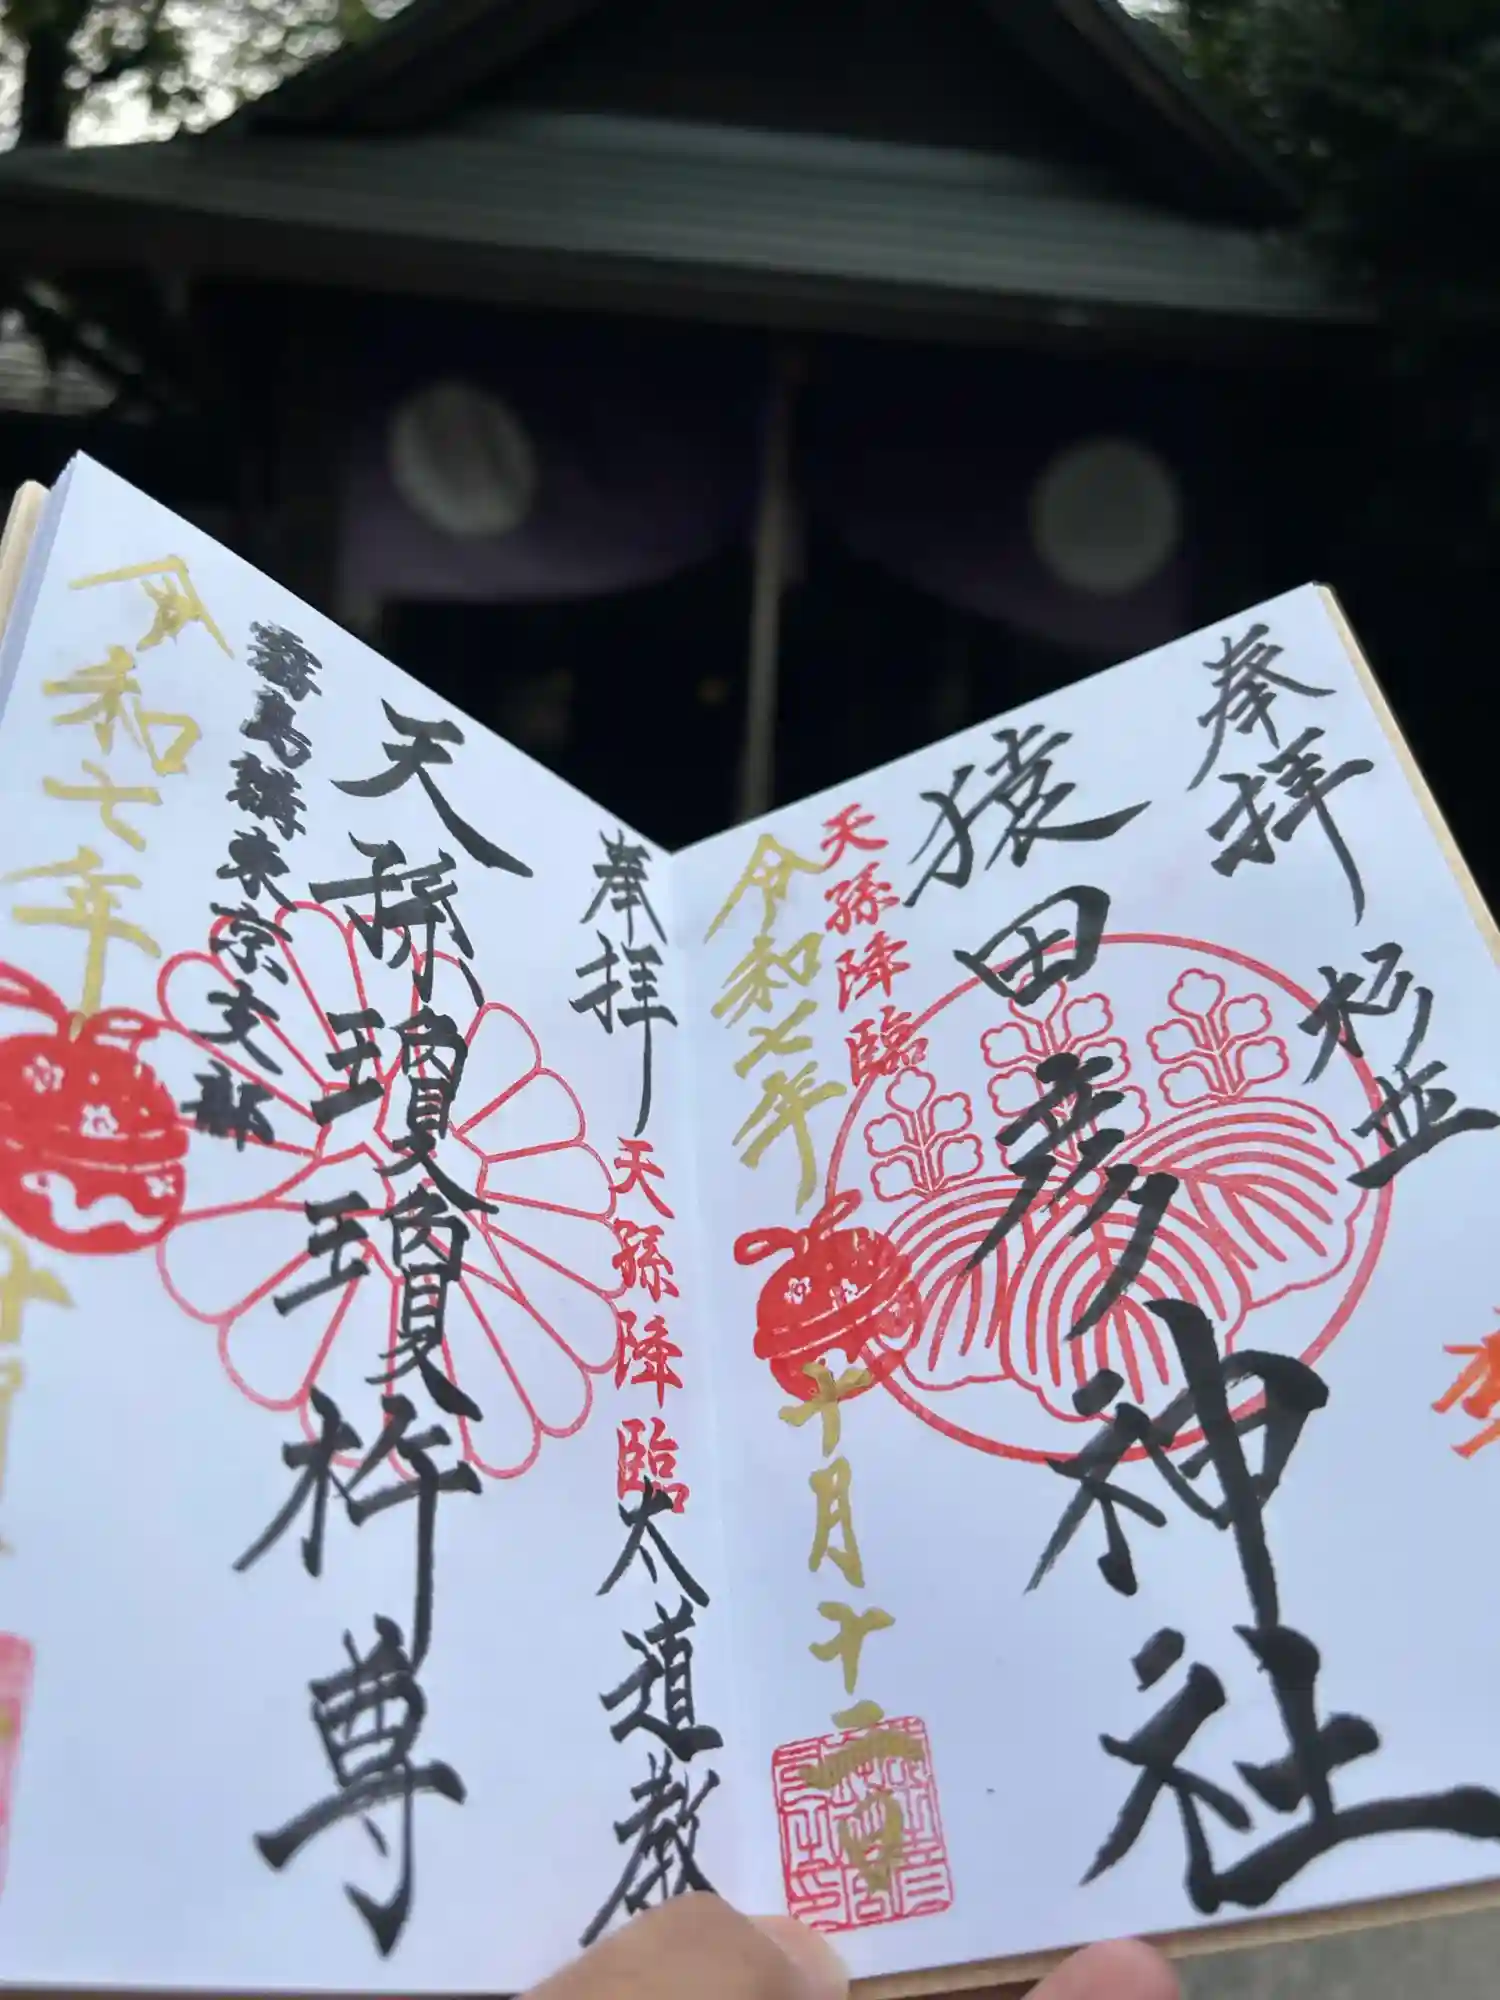 奉拝
杉並
猿田彦神社
天孫降臨
令和七年
十月十二日
奉拝
天孫降臨
太道教
天孫瓊瓊杵尊
霧島講東京支部
令和七年